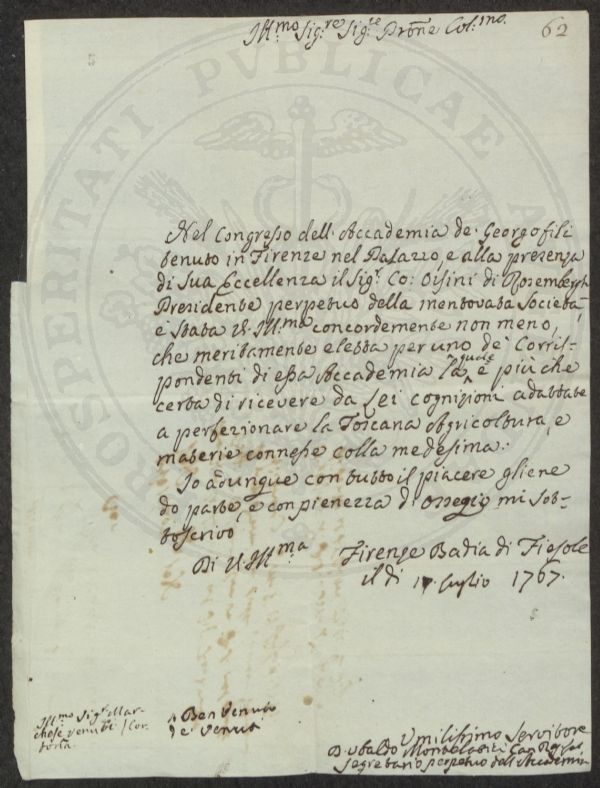 Ill:mo Sig:re Sig:re Prõne Col:mo
62
PROSPERITATI PVBLICAE
Nel Congresso dell'Accademia de' Georgofili
tenuto in Firenze nel Palazzo, e alla presenza
di Sua Eccellenza il Sig:r Co: Orsini di Rosembergh
Presidente perpetuo della mentovata Società
è stata V. Ill:mo concordemente non meno,
che meritamente eletta per uno de' Corris-
pondenti di essa Accademia la quale è più che
certa di ricevere da Lei cognizioni adattate
a perfezionare la Toscana Agricoltura, e
materie connesse colla medesima:
Io adunque con tutto il piacere gliene
do parte, e con pienezza d'ossequio mi sot-
toscrivo
Di V. Ill:ma
Firenze Badia di Fiesole
il dì 17. Luglio 1767.
Ill:mo Sig:r Mar-
chese Venuti / Cor-
tona
Benvenuto
de' Venuti
Umilissimo Servitore
D. Ubaldo Montelatici Can. Reg. Lat.
Segretario perpetuo dell'Accademia